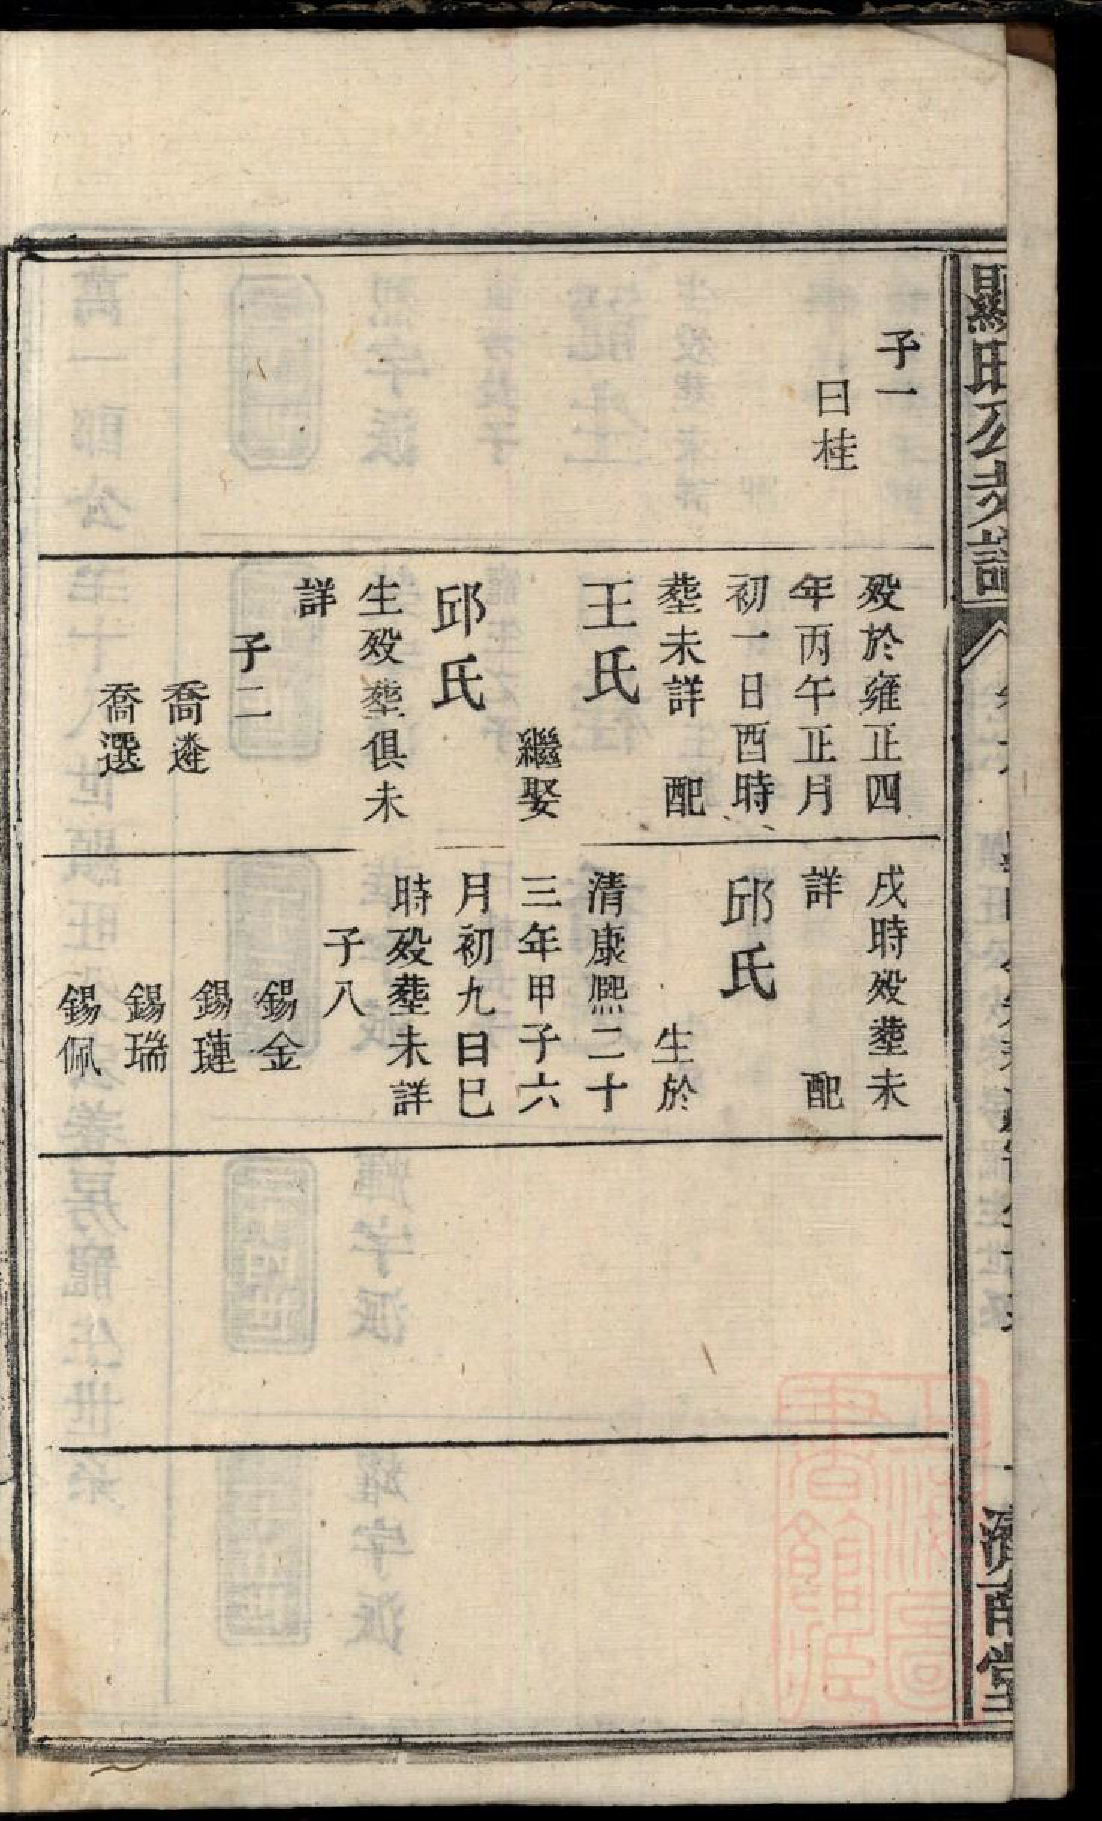 顯旺公支譜
子一
曰桂
歿於雍正四
年丙午正月
初一日酉時
塟未詳　配
王氏
繼娶
邱氏
生歿塟俱未
詳
子二
喬遴
喬選
戌時歿塟未
詳　配
邱氏
生於
清康熙二十
三年甲子六
月初九日巳
時歿塟未詳
子八
錫金
錫璉
錫瑞
錫佩
濟南堂